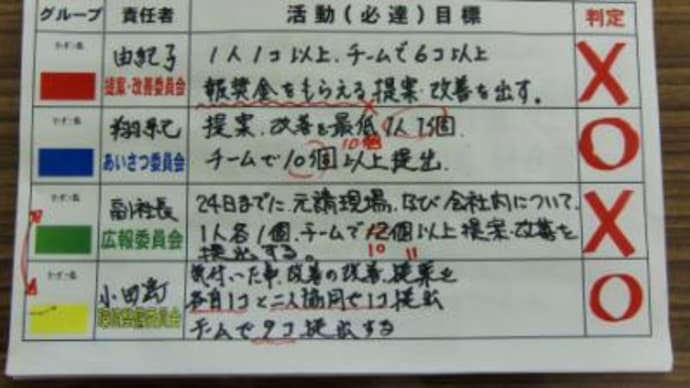 グループ 責任者 活動(必達)目標 判定
由紀子
提案・改善委員会
1人1コ以上、チームで6コ以上
報奨金をもらえる提案・改善を出す。
X
あいさつ委員会
提案、改善を最低1人1個
10個
チームで10個以上提出
O
副社長
広報委員会
24日までに元請現場、及び会社内について、
1人各1個、チームで12個以上提案・改善を
10 11
提出する。
X
小田島
気付いた事、改善の改善、提案を
各自1コと二人協同で1コ提出
チームで9コ提出する
O